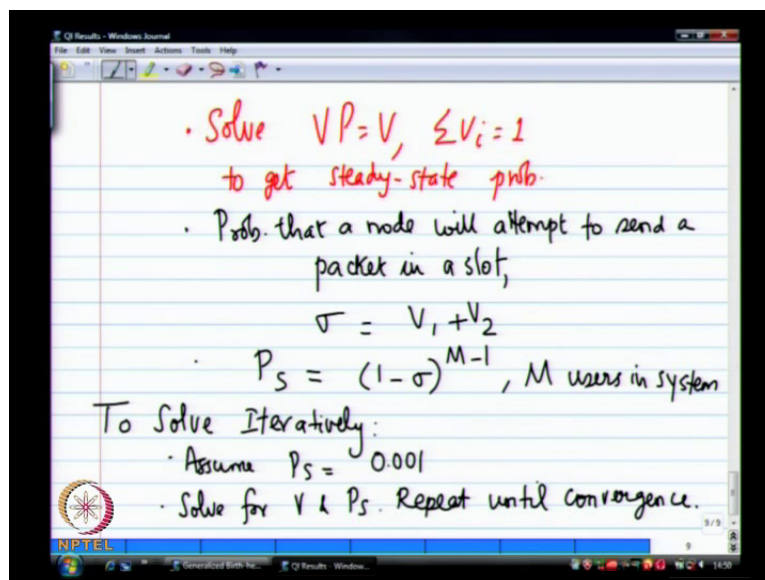 QI Results - Windows Journal
File Edit View Insert Actions Tools Help
• Solve VP=V, ΣVi=1
to get steady-state prob.
• Prob. that a node will attempt to send a
packet in a slot,
σ = V1+V2
• Ps = (1-σ)^M-1, M users in system
To Solve Iteratively:
• Assume Ps = 0.001
• Solve for V & Ps. Repeat until convergence.
9/9
9
NPTEL
Generalized Birth-he... QI Results - Window... 14:50